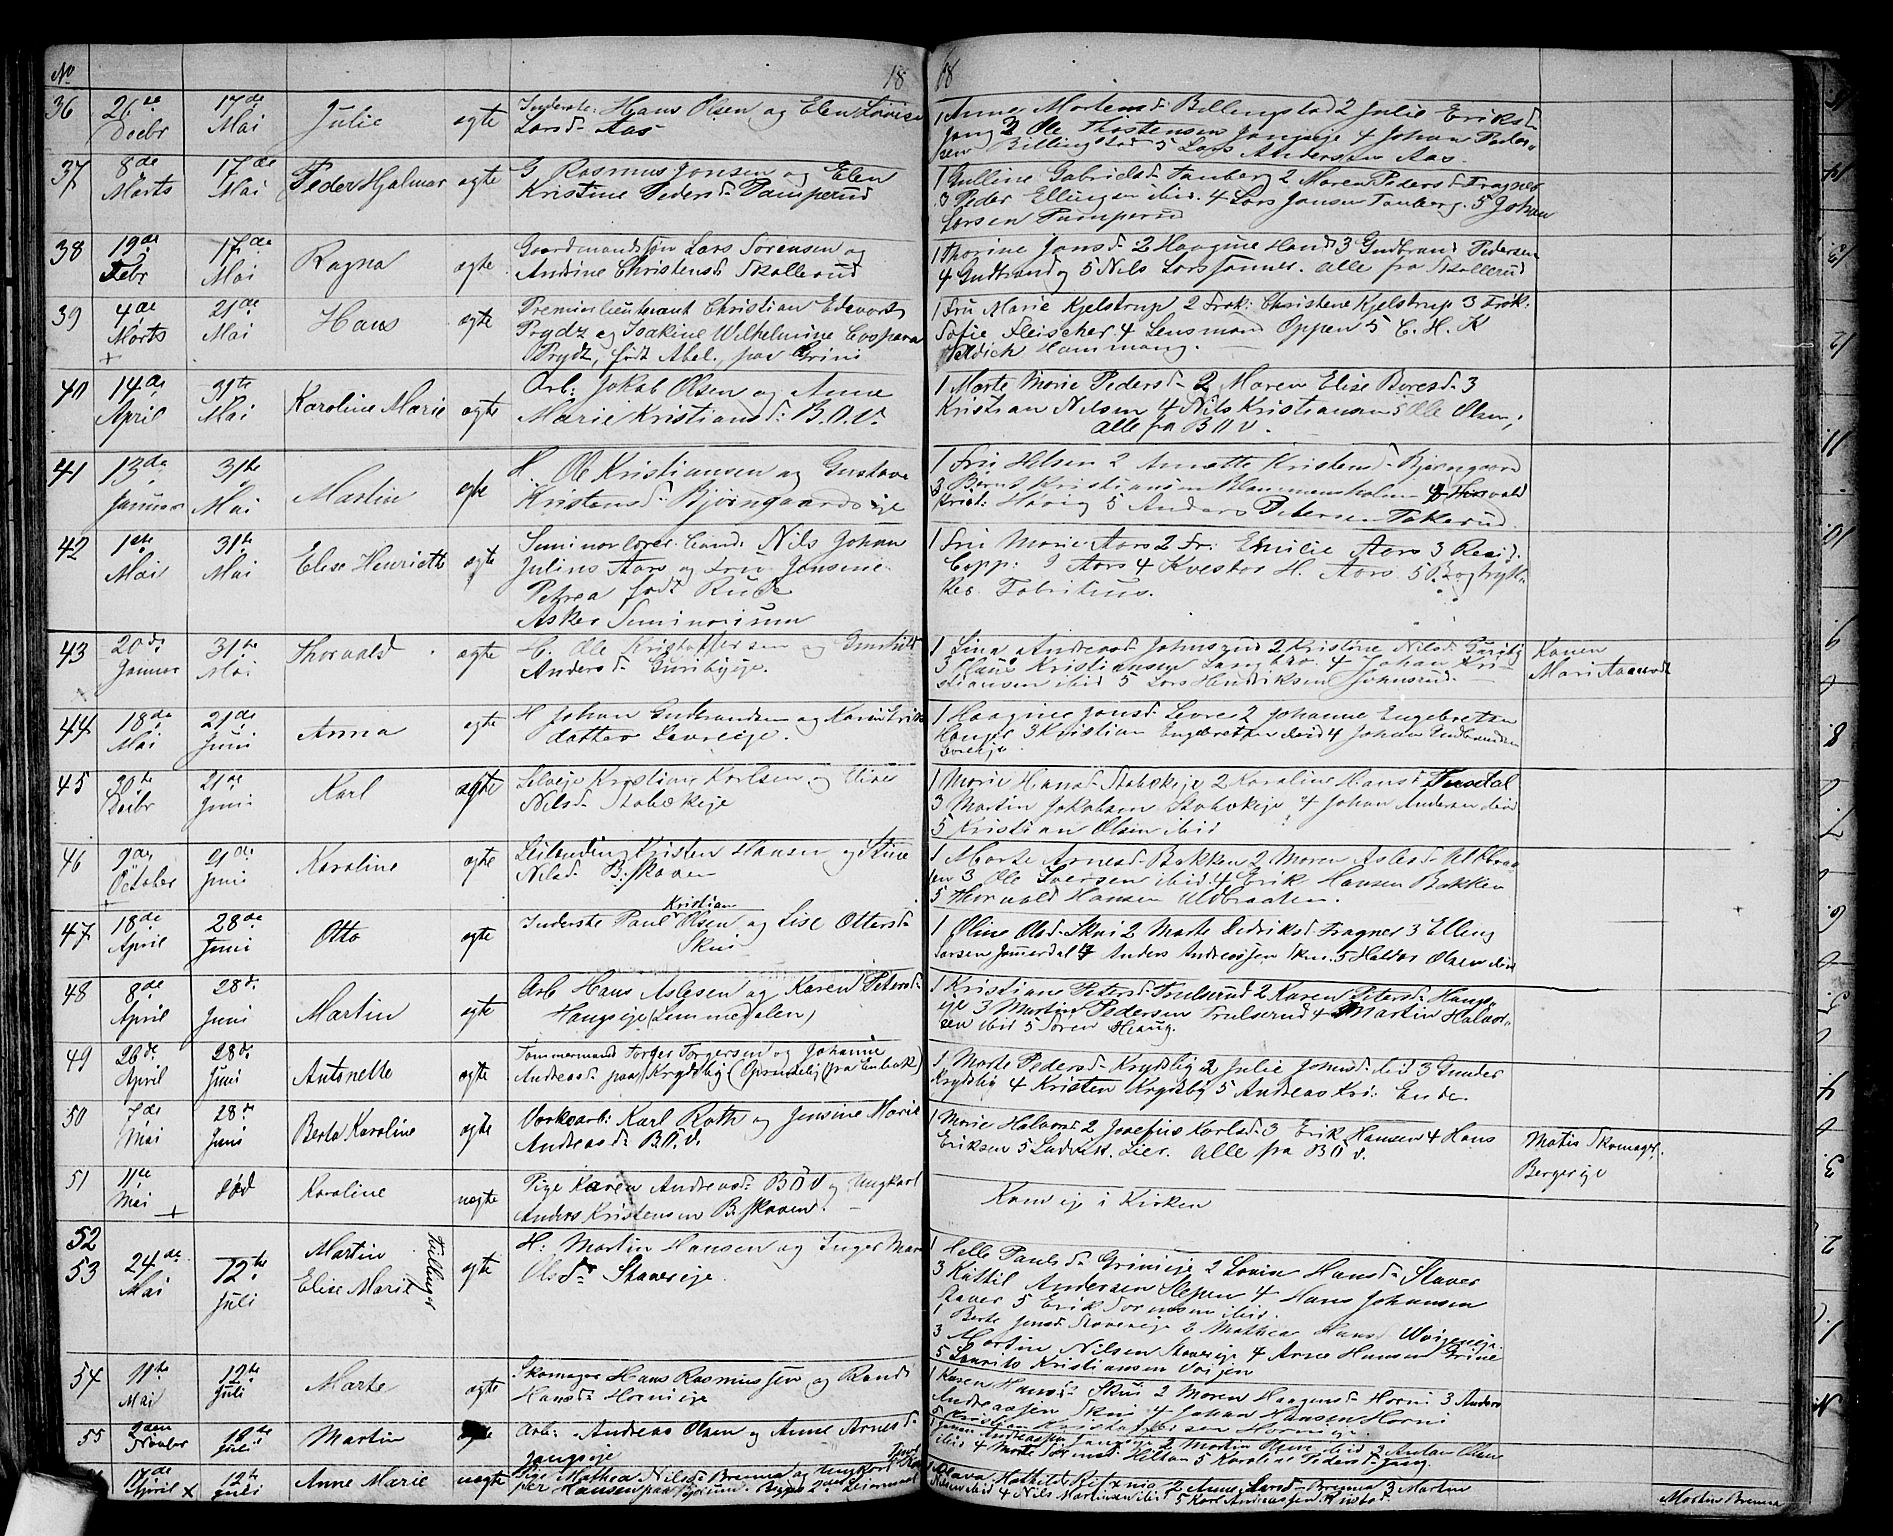 No 18 18
36 26de Decbr 17de Mai Julie ægte Inderste: Hans Olsen og Elen Lovise
Larsd. Aas
1 Anne Mortensd. Billingstad 2 Julie Eriksd.
Jong 3 Ole Thostensen Jongseje 4 Johan Peder-
sen Billingstad 5 Lars Andersen Aas.
37 8de Marts 17de Mai Peder Hjalmar ægte G Rasmus Jonsen og Elen
Kristine Pedersd. Pamperud
1 Gulline Gabrielsd. Tanberg 2 Maren Pedersd. Fragner
3 Peder Ellingsen ibid. 4 Lars Jonsen Tanberg. 5 Johan
Larsen Pamperud
38 19de Febr 17de Mai Ragna ægte Gaardmandssøn Lars Sørensen og
Andrine Christensd. Skollerud
1 Thorine Jonsd. 2 Haagine Hansd. 3 Gudbrand Pedersen
4 Gudbrand og 5 Nils Larssønner. alle fra Skollerud
39 4de Marts + 21de Mai Hans ægte Premierlieutenant Christian Edevort
Prydz og Isakine Wilhelmine Caspara
Prydz, født Abel, paa Grini
1 Fru Marie Kjelstrup 2 Frøk: Christene Kjelstrup 3 Frøk:
Sofie Fleischer 4 Lensmand Oppen 5 C. H. K
Hammang.
40 14de April 31te Mai Karoline Marie ægte Arb: Jakob Olsen og Anne
Marie Kristiansd: B.O.V.
1 Marte Marie Pedersd. 2 Maren Elise Boresd. 3
Kristian Nilsen 4 Nils Kristiansen 5 Ole Olsen,
alle fra B O V.
41 13de Januar 31te Mai Martin ægte H. Ole Kristiansen og Gustava
Kristensd. Bjørngaardseje
1 Fru Helsen 2 Annette Kristensd. Bjørngaard
3 Bernt Kristiansen Blommenholm 4 Thorvald
Krist: Høvig 5 Anders Petersen Takerud.
42 1ste Mai 31te Mai Elise Henriette ægte Seminarlærer Cand: Nils Johan
Julius Aars og Fru Jensine
Petrea født Rude
Asker Seminarium
1 Fru Marie Aars 2 Fr: Emilie Aars 3 Resid.
Capp: J Aars 4 Kvestor H. Aars 5 Bogtryk-
ker Fabritius.
43 20de Januar 31te Mai Thorvald ægte H: Ole Kristoffersen og Gunhild
Andersd. Guribyeje.
1 Lina Andreasd. Johnsrud 2 Kristine Nilsd. Guriby
3 Kristiansen Langbro. 4 Johan Kri-
stiansen ibid 5 Lars Hendriksen Johnsrud.
Konen
Mari Aamodt
44 18de Mai 21de Juni Anna ægte H Johan Gudbrandsen og Karen Erik
datter Levreeje.
1 Haagine Jonsd. Levre 2 Johanne Engebretsen
Hauger 3 Kristian Engebretsen ibid 4 Johan Gudbrandsen
Levreeje
45 20te Decbr 21de Juni Karl ægte Selveje Kristian Karlsen og Eline
Nilsd. Stabækeje
1 Marie Hansd. Stabækeje 2 Karoline Hansd. Tusdal
3 Martin Jakobsen Stabækeje 4 Johan Andersen ibid
5 Kristian Olsen ibid
46 9de October 21de Juni Karoline ægte Leilending Kristen Hansen og Stine
Nilsd. B. skoven
1 Marte Arnesd. Bakken 2 Maren Aslesd. Aldbraa-
ten 3 Ole Iversen ibid 4 Erik Hansen Bakken
5 Thorvald Hansen Aldbraaten.
47 18de April 28de Juni Otto ægte Inderste Paul Kristian Olsen og Lise Ottersd.
Skui
1 Oline Olsd. Skui 2 Marte Fredriksd. Fragner 3 Elling
Larsen Jammerdal 4 Anders Andreassen Skui. 5 Haldor Olsen ibid
48 8de April 28de Juni Martin ægte Arb Hans Aslesen og Karen Petersd.
Haugseje (Lommedalen)
1 Kristiane Petersd. Trulserud 2 Karen Petersd. Haugs-
eje 3 Martin Pedersen Trulserud 4 Martin Halvor-
sen ibid 5 Søren Haug.
49 26de April 28de Juni Antonette ægte Tømmermand Torger Torgersen og Johanne
Andreasd. paa Krydsbig (Oprindelig fra Enbak)
1 Marte Pedersd. Krydsbig 2 Julie Johnsd. ibid 3 Gunder
Krydsbig 4 Kristen Krydsby 5 Andreas Kri: Ende.
50 7de Mai 28de Juni Berta Karoline ægte Værksarb: Karl Roth og Jensine Marie
Andreasd. B.O.V.
1 Marie Halvorsd. 2 Josefius Karlsd. 3 Erik Hansen 4 Hans
Eriksen 5 Ludvik. Lier. alle fra B O V.
Matis Skomager.
Bergerseje
51 11te Mai + død Karoline uægte Pige Karen Andreasd. B O V og Ungkarl
Anders Kristensen B. skoven.
Kom ej i Kirken
52
53 24de Mai 12te Juli Martin
Elise Marie Tvillinger ægte H: Martin Hansen og Inger Mari
Olsd. Stavereje.
1 Helle Paulsd. Grinieje 2 Lovise Hansd. Staver
3 Kittil Andersen Stepen 4 Hans Johansen
Staver 5 Erik Sørensen ibid.
1 Berte Jensd. Stavereje 2 Mathea Hansd.
3 Martin Nilsen Stavereje 4 Arne Hansen Grini
5 Laurits Kristiansen Vøijen
54 11te Mai 12te Juli Marte ægte Skomager Hans Rasmussen og Randi
Hansd. Hornieje
1 Karen Hansd. Skui 2 Maren Haagensd. Horni 3 Anders
Andreassen Skui 4 Johan Hansen Horni
5 Kristian Kristoffersen Hornieje.
55 2den Novber 12te Juli Martin ægte Arb: Andreas Olsen og Anne Arnesd.
Jongseje
2 Martin Olsen ibid 3 Anton Olsen
ibid 4 Marte Sørensd. Heltan 5 Karoline Pedersd. Jong.
17de April x 12te Juli Anne Marie uægte Pige Mathea Nilsd. Brenna og Ungkarl
Hansen paa Bjerum. Begges 2det Leiermaal
Mathilde 2 Anne Larsd. Brenna 3 Martin
Nilsen ibid 4 Nils Martinsen ibid 5 Karl Andreassen
Martin Brenna